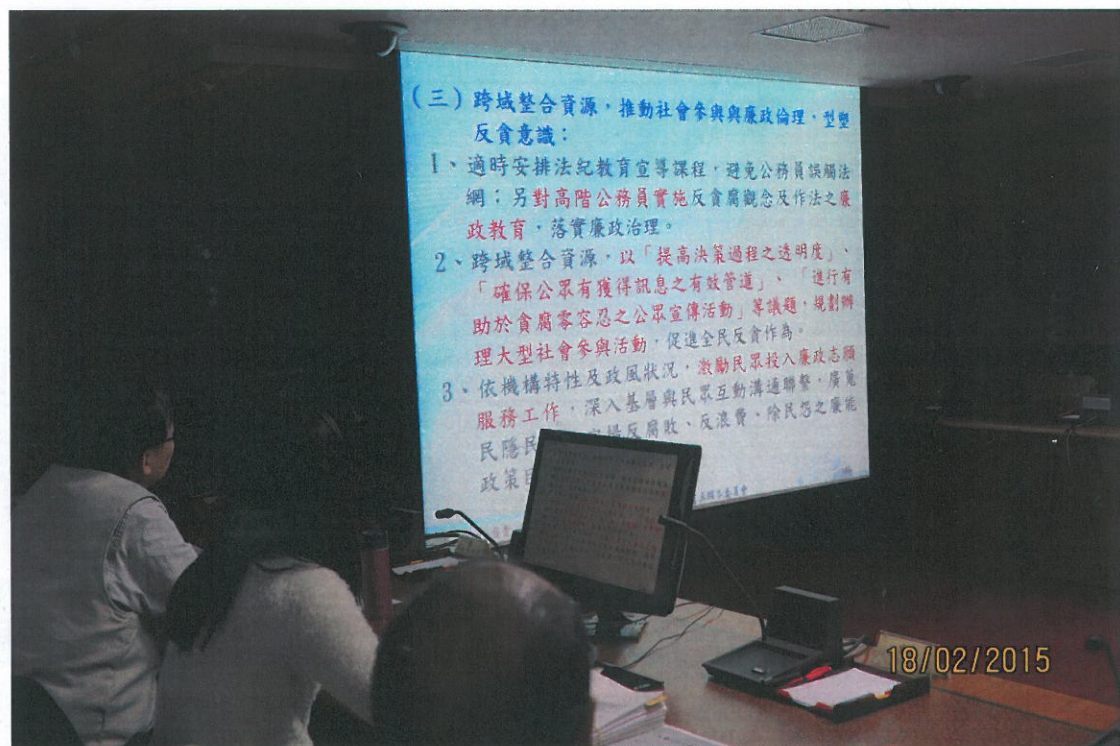 (三)跨域整合資源,推動社會參與與廉政倫理,型塑
反貪意識:
1、適時安排法紀教育宣導課程,避免公務員誤觸法
網;另對高階公務員實施反貪腐觀念及作法之廉
政教育,落實廉政治理。
2、跨域整合資源,以「提高決策過程之透明度」、
「確保公眾有獲得訊息之有效管道」、「進行有
助於貪腐零容忍之公眾宣傳活動」等議題,規劃辦
理大型社會參與活動,促進全民反貪作為。
3、依機構特性及政風狀況,激勵民眾投入廉政志願
服務工作,深入基層與民眾互動溝通聯繫,廣蒐
民隱民 反腐敗、反浪費、除民怨之廉能
政策目
委員會
18/02/2015